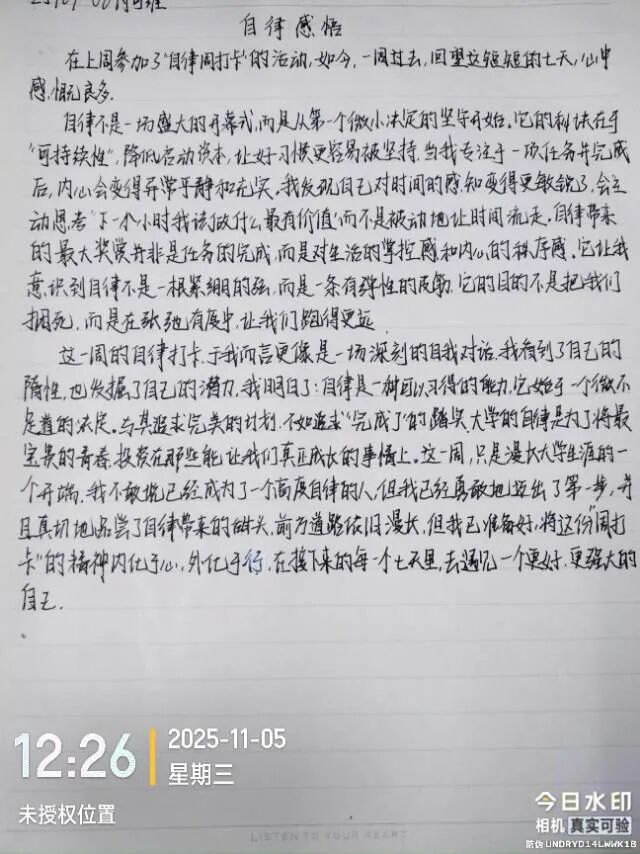 自律感悟
在上周参加了“自律周打卡”的活动,如今,一周过去,回望这短短的七天,心中
感慨良多.
自律不是一场盛大的开幕式,而是从第一个微小决定的坚守开始.它的秘诀在于
“可持续性”,降低启动资本,让好习惯更容易被坚持.当我专注于一项任务并完成
后,内心会变得异常平静和充实.我发现自己对时间的感知变得更敏锐了,会主
动思考“下一个小时我该做什么最有价值”而不是被动地让时间流走.自律带来
的最大奖赏并非是任务的完成,而是对生活的掌控感和内心的秩序感.它让我
意识到自律不是一根紧绷的弦,而是一条有弹性的皮筋.它的目的不是把我们
捆死,而是在张弛有度中,让我们跑得更远.
这一周的自律打卡,于我而言更像是一场深刻的自我对话.我看到了自己的
惰性,也发掘了自己的潜力,我明白了:自律是一种可以习得的能力,它始于一个微不
足道的决定.与其追求完美的计划,不如追求“完成了”的踏实.大学的自律是为了将最
宝贵的青春,投资在那些能让我们真正成长的事情上.这一周,只是漫长大学生涯的一
个开端.我不敢说已经成为了一个高度自律的人,但我已经勇敢地迈出了第一步,并
且真切地品尝了自律带来的甜头.前方道路依旧漫长,但我已准备好,将这份“周打
卡”的精神内化于心,外化于行.在接下来的每一个七天里,去遇见一个更好,更强大的
自己.
12:26
2025-11-05
星期三
未授权位置
今日水印
相机 真实可验
防伪 UNDRYD14LWWK1B
LISTEN TO YOUR HEART